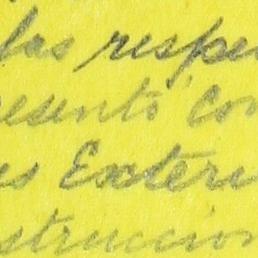 las respe
esentó con
es Exteri
strucción